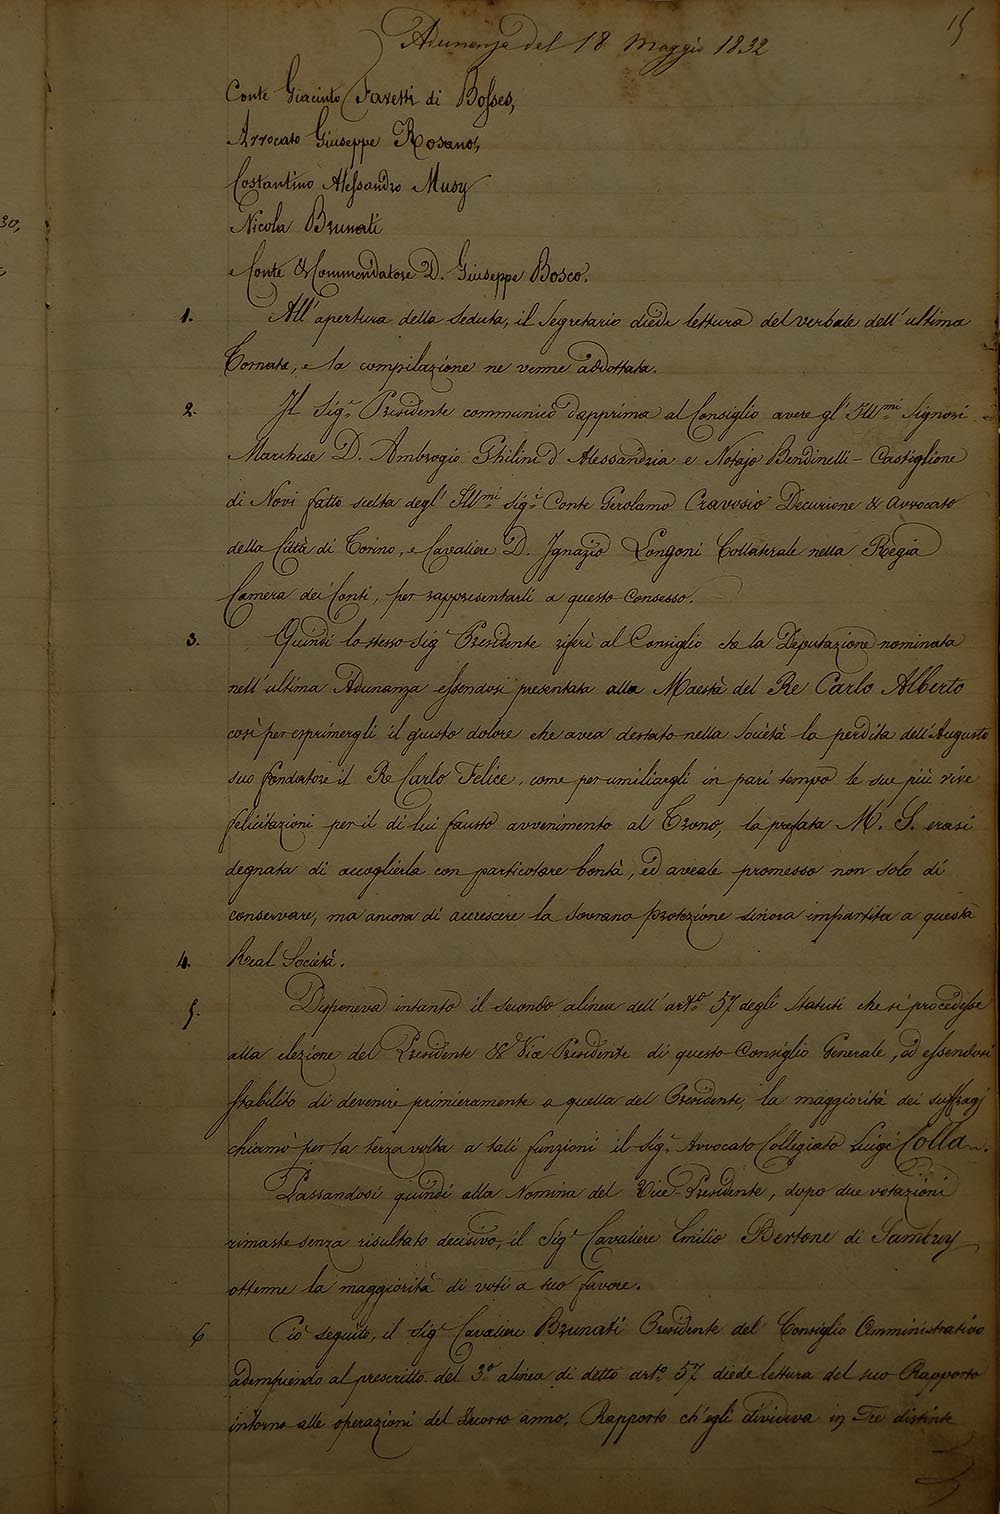 15
Adunanza del 18 Maggio 1832
30,
Conte Giacinto Favetti di Bosses,
Avvocato Giuseppe Rosano,
Costantino Alessandro Musy
Nicola Brunati
e Conte & Commendatore D. Giuseppe Bosco.
1. All'apertura della Seduta, il Segretario diede lettura del verbale dell'ultima
Tornata, e la compilazione ne venne addottata.
2. Il Sig.r Presidente communicò dapprima al Consiglio avere gl'Ill.mi Signori
Marchese D. Ambrogio Ghilini d'Alessandria e Notajo Bendinelli - Castiglione
di Novi fatto scelta degl'Ill.mi Sig.i Conte Gerolamo Cravosio Decurione & Avvocato
della Città di Torino, e Cavaliere D. Ignazio Longoni Collaterale nella Regia
Camera dei Conti, per rappresentarli a questo Consesso.
3. Quindi lo stesso Sig.r Presidente riferì al Consiglio che la Deputazione nominata
nell'ultima Adunanza essendosi presentata alla Maestà del Re Carlo Alberto
così per esprimergli il giusto dolore che avea destato nella Società la perdita dell'Augusto
suo fondatore il Re Carlo Felice, come per umiliargli in pari tempo le sue più vive
felicitazioni per il di lui fausto avvenimento al Trono, la prefata M. S. erasi
degnata di accoglierla con particolare bontà, ed aveale promesso non solo di
conservare, ma ancora di accrescere la Sovrana protezione sinora impartita a questa
4. Real Società.
5. Disponeva intanto il secondo alinea dell'art.o 57 degli Statuti che si procedesse
alla elezione del Presidente & Vice Presidente di questo Consiglio Generale, ed essendosi
stabilito di devenire primieramente a quella del Presidente, la maggiorità dei suffragj
chiamò per la terza volta a tali funzioni il Sig.r Avvocato Collegiato Luigi Colla.
Passandosi quindi alla Nomina del Vice-Presidente, dopo due votazioni
rimaste senza risultato decisivo, il Sig.r Cavaliere Emilio Bertone di Sambuy
ottenne la maggiorità di voti a suo favore.
6 Ciò seguito, il Sig.r Cavaliere Brunati Presidente del Consiglio Amministrativo
adempiendo al prescritto del 3.o alinea di detto art.o 57 diede lettura del suo Rapporto
intorno alle operazioni del decorso anno, Rapporto ch'egli divideva in Tre distinte